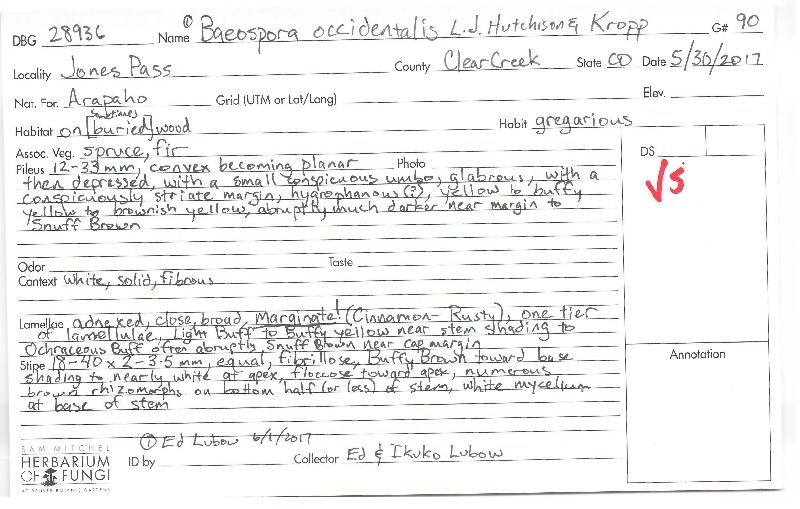 DBG 28936 Name ① Baeospora occidentalis L.J. Hutchison & Kropp G# 90
Locality Jones Pass County Clear Creek State CO Date 5/30/2017
Nat. For. Arapaho Grid (UTM or Lat/Long) Elev.
Habitat on [sometimes buried] wood Habit gregarious
Assoc. Veg. spruce, fir DS
Pileus 12-33 mm, convex becoming planar Photo
then depressed, with a small conspicuous umbo, glabrous, with a
conspicuously striate margin, hygrophanous (?), yellow to buffy
yellow to brownish yellow, abruptly much darker near margin to
Snuff Brown
√5
Odor Taste
Context white, solid, fibrous
Lamellae adnexed, close, broad, marginate! (Cinnamon-Rusty), one tier
of lamellulae, Light Buff to Buffy yellow near stem shading to
Ochraceous Buff often abruptly Snuff Brown near cap margin
Stipe 18-40 x 2-3.5 mm, equal, fibrillose, Buffy Brown toward base
shading to nearly white at apex, floccose toward apex, numerous
brown rhizomorphs on bottom half (or less) of stem, white mycelium
at base of stem
Annotation
ID by ① Ed Lubow 6/1/2017 Collector Ed & Ikuko Lubow
SAM MITCHEL
HERBARIUM
OF FUNGI
AT DENVER BOTANIC GARDENS